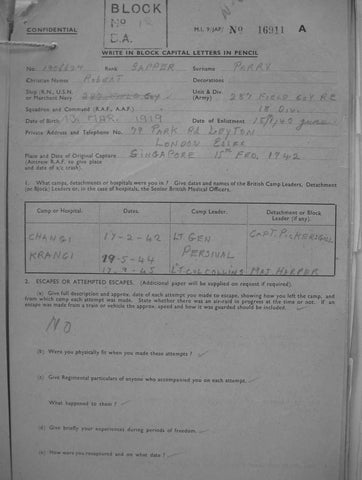 BLOCK
No 12
D.A.
CONFIDENTIAL
M.I. 9/JAP/ No 16911 A
WRITE IN BLOCK CAPITAL LETTERS IN PENCIL
No. Rank SAPPER Surname PERRY
Christian Names ROBERT Decorations
Ship (R.N., U.S.N. or Merchant Navy) Unit & Div. (Army) 287 FIELD COY RE
18 DIVI
Squadron and Command (R.A.F., A.A.F.)
Date of Birth 13 MAR. 1919 Date of Enlistment 15/ /40 June
Private Address and Telephone No. 79 PARK RD LEYTON
LONDON ESSEX
Place and Date of Original Capture SINGAPORE 15TH FEB. 1942
(Aircrew R.A.F. to give place
and date of a/c crash).
1. What camps, detachments or hospitals were you in? Give dates and names of the British Camp Leaders, Detachment
(or Block) Leaders or, in the case of hospitals, the Senior British Medical Officers.
Camp or Hospital. Dates. Camp Leader. Detachment or Block Leader (if any).
CHANGI 17-2-42 LT GEN CAPT. PICKERSGILL
PERSIVAL
KRANGI 29-5-44
12.9-45 LT COL COLLINS MAJ HARPER
2. ESCAPES OR ATTEMPTED ESCAPES. (Additional paper will be supplied on request if required).
(a) Give full description and approx. date of each attempt you made to escape, showing how you left the camp, and
from which camp each attempt was made. State whether there was an air-raid in progress at the time or not. If an
escape was made from a train or vehicle the approx. speed and how it was guarded should be included.
NO
(b) Were you physically fit when you made these attempts?
(c) Give Regimental particulars of anyone who accompanied you on each attempt.
What happened to them?
(d) Give briefly your experiences during periods of freedom.
(e) How were you recaptured and on what date?